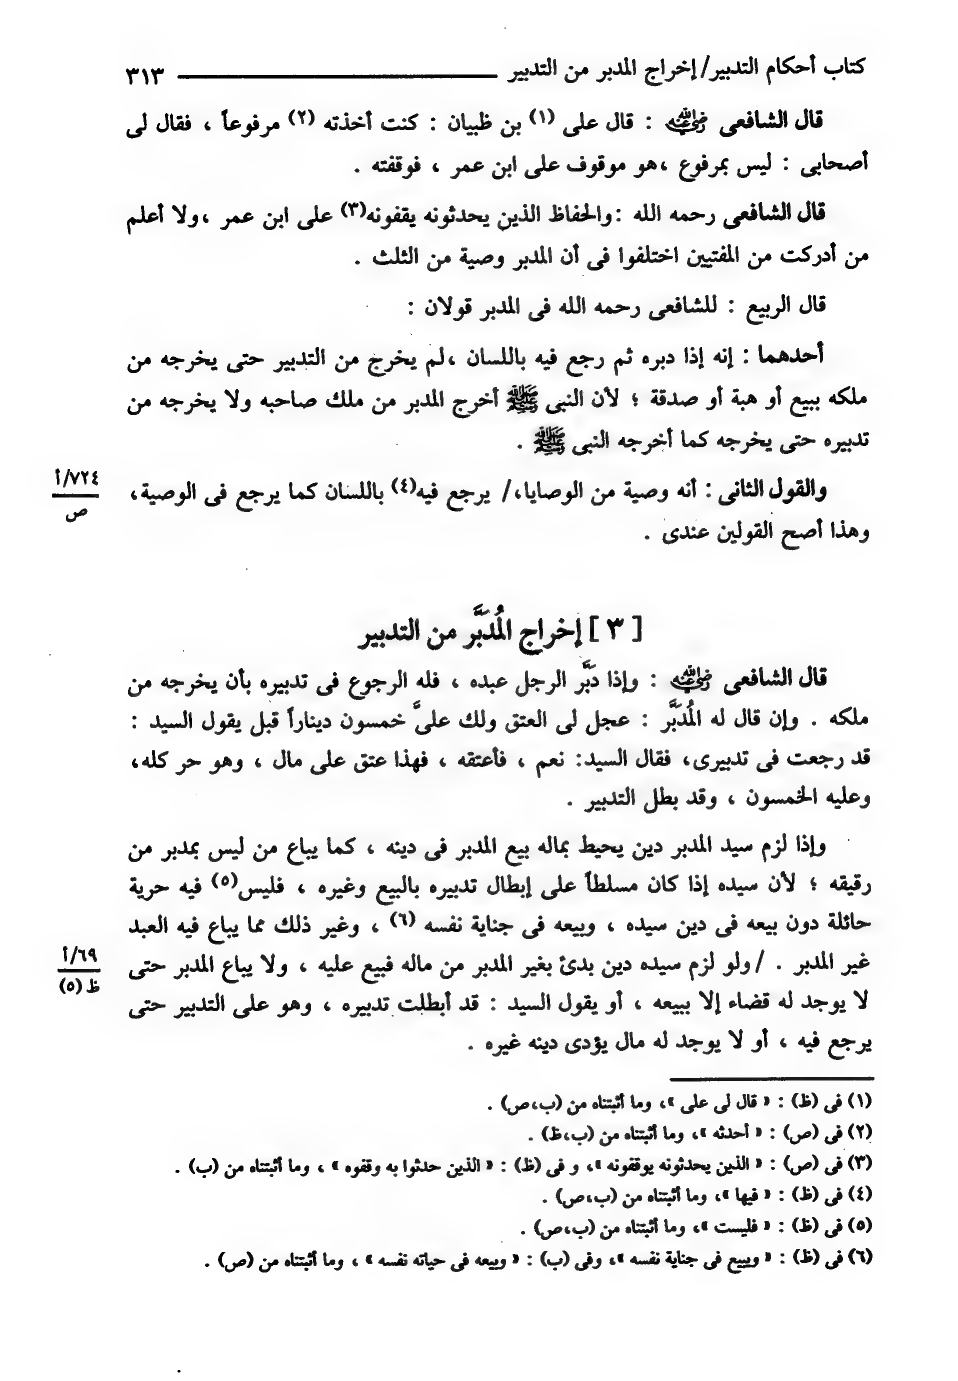 كتاب أحكام التدبير/ إخراج المدبر من التدبير ٣١٣
قال الشافعى رضي الله عنه : قال على (١) بن ظبيان : كنت أخذته (٢) مرفوعاً ، فقال لى
أصحابى : ليس بمرفوع ،هو موقوف على ابن عمر ، فوقفته .
قال الشافعى رحمه الله :والحفاظ الذين يحدثونه يقفونه(٣) على ابن عمر ،ولا أعلم
من أدركت من المفتيين اختلفوا فى أن المدبر وصية من الثلث .
قال الربيع : للشافعى رحمه الله فى المدبر قولان :
أحدهما : إنه إذا دبره ثم رجع فيه باللسان ،لم يخرج من التدبير حتى يخرجه من
ملكه ببيع أو هبة أو صدقة ؛ لأن النبى ﷺ أخرج المدبر من ملك صاحبه ولا يخرجه من
تدبيره حتى يخرجه كما أخرجه النبى ﷺ .
والقول الثانى : أنه وصية من الوصايا،/ يرجع فيه(٤) باللسان كما يرجع فى الوصية،
٧٢٤/أ
ص
وهذا أصح القولين عندى .
[ ٣ ] إخراج المُدَبَّر من التدبير
قال الشافعى رضي الله عنه : وإذا دَبَّر الرجل عبده ، فله الرجوع فى تدبيره بأن يخرجه من
ملكه . وإن قال له المُدَبَّر : عجل لى العتق ولك علىَّ خمسون ديناراً قبل يقول السيد :
قد رجعت فى تدبيرى، فقال السيد: نعم ، فأعتقه ، فهذا عتق على مال ، وهو حر كله،
وعليه الخمسون ، وقد بطل التدبير .
وإذا لزم سيد المدبر دين يحيط بماله بيع المدبر فى دينه ، كما يباع من ليس بمدبر من
رقيقه ؛ لأن سيده إذا كان مسلطاً على إبطال تدبيره بالبيع وغيره ، فليس(٥) فيه حرية
حائلة دون بيعه فى دين سيده ، وبيعه فى جناية نفسه (٦) ، وغير ذلك مما يباع فيه العبد
غير المدبر . /ولو لزم سيده دين بدئ بغير المدبر من ماله فبيع عليه ، ولا يباع المدبر حتى
٦٩/أ
ظ (٥)
لا يوجد له قضاء إلا ببيعه ، أو يقول السيد : قد أبطلت تدبيره ، وهو على التدبير حتى
يرجع فيه ، أو لا يوجد له مال يؤدى دينه غيره .
(١) فى (ظ) : « قال لى على »، وما أثبتناه من (ب،ص) .
(٢) فى (ص) : « أحدثه »، وما أثبتناه من (ب،ظ) .
(٣) فى (ص) : « الذين يحدثونه يوقفونه »، و فى (ظ) : « الذين حدثوا به وقفوه » ، وما أثبتناه من (ب) .
(٤) فى (ظ) : « فيها »، وما أثبتناه من (ب،ص) .
(٥) فى (ظ) : « فليست »، وما أثبتناه من (ب،ص) .
(٦) فى (ظ) : « وبيع فى جناية نفسه »، وفى (ب) : « وبيعه فى حياته نفسه » ، وما أثبتناه من (ص) .